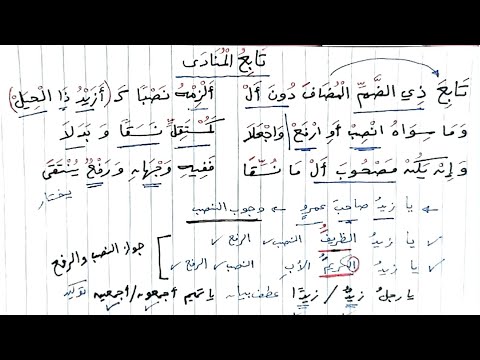 تَابِعُ الْمُنَادَى
تَابِعَ ذِي الضَّمِّ الْمُضَافَ دُونَ أَلْ أَلْزِمْهُ نَصْبًا كَـ (أَزَيْدُ ذَا الْحِيَلْ)
وَمَا سِوَاهُ انْصِبْ أَوِ ارْفَعْ وَاجْعَلَا كَمُسْتَقِلٍّ نَسَقًا وَبَدَلَا
وَإِنْ يَكُنْ مَصْحُوبَ أَلْ مَا نُسِقَا فَفِيهِ وَجْهَانِ وَرَفْعٌ يُنْتَقَى
يختار
يا زيدُ صاحبَ عمرٍو ← وجوب النصب
يا زيدُ الظريفُ النصب الرفع
جواز النصب والرفع
يا زيدُ الكريمُ الأبِ النصب الرفع
يا رجلُ زيدٌ / زيدًا عطف بيان يا تميم أجمعون / أجمعين توكيد